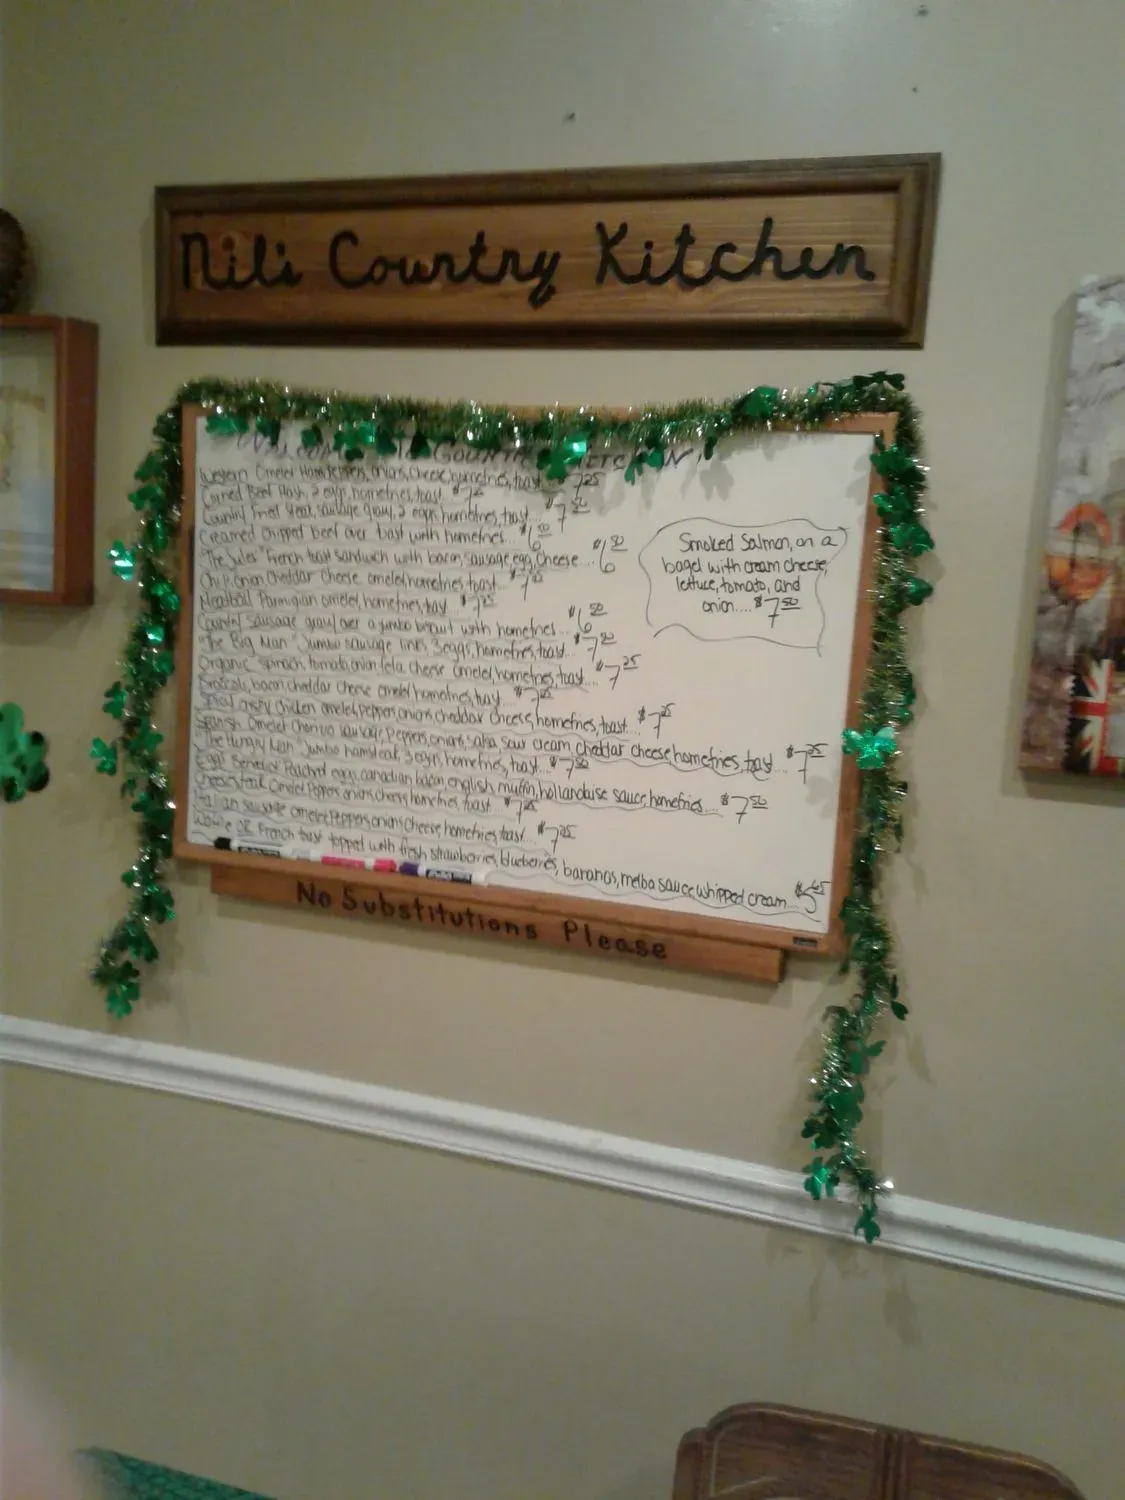 Nil's Country Kitchen
WELCOME TO COUNTRY KITCHEN!
Western Omelet Ham, Peppers, onions, cheese, homefries, toast... $7 25
Corned Beef Hash, 2 eggs, homefries, toast.
Country Fried Steak, sausage gravy, 2 eggs, homefries, toast... $7 50
Creamed chipped beef over toast with homefries... $6 50
"The Jules" French toast sandwich with bacon, sausage, egg, cheese... $6 50
Chili, Onion Cheddar cheese omelet, homefries, toast... $7 25
Meatball Parmigian omelet, homefries, toast. $7 25
Country sausage gravy over a jumbo biscuit with homefries... $6 50
"The Big Man" Jumbo sausage links, 3 eggs, homefries, toast... $7 50
Organic spinach, tomato, onion, feta cheese omelet, homefries, toast... $7 25
Broccoli, bacon cheddar cheese omelet homefries, toast... $7 25
Spicy crispy chicken omelet, peppers, onions, cheddar cheese, homefries, toast. $7 25
Spanish Omelet chorizo sausage, Peppers, onions, salsa, sour cream, cheddar cheese, homefries, toast... $7 25
"The Hungry Man" Jumbo hamsteak, 3 eggs, homefries, toast... $7 50
Eggs Benedict Poached eggs, canadian bacon, english muffin, hollandaise sauce, homefries... $7 50
Cheesesteak Omelet Peppers onions cheese, homefries, toast $7 25
Italian sausage omelet, Peppers, onions, cheese, homefries, toast... $7 25
Waffle OR French toast topped with fresh strawberries, blueberries, bananas, melba sauce, whipped cream...
Smoked Salmon, on a
bagel with cream cheese,
lettuce, tomato, and
onion.... $7 50
No Substitutions Please